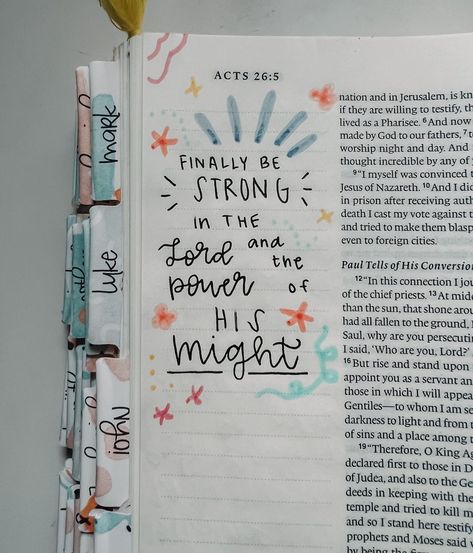 ACTS 26:5
FINALLY BE
STRONG
IN THE
Lord and
the
power of
HIS
might
mark
luke
john
nation and in Jerusalem, is kn
if they are willing to testify, th
lived as a Pharisee. 6 And now
made by God to our fathers, 7
worship night and day. And
thought incredible by any of
9 "I myself was convinced t
Jesus of Nazareth. 10 And I did
in prison after receiving auth
death I cast my vote against th
and tried to make them blasp
even to foreign cities.
Paul Tells of His Conversion
12 "In this connection I jou
of the chief priests. 13 At mid
than the sun, that shone arou
had all fallen to the ground,
Saul, why are you persecutin
I said, 'Who are you, Lord?'
16 But rise and stand upon
appoint you as a servant and
those in which I will appea
Gentiles—to whom I am se
darkness to light and from t
of sins and a place among t
19 "Therefore, O King Ag
declared first to those in D
of Judea, and also to the Ge
deeds in keeping with the
temple and tried to kill m
and so I stand here testify
prophets and Moses said w